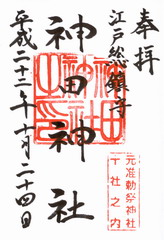 奉拝
江戸総鎮守
神田神社
平成二十二年十月二十四日
元准勅祭神社
十社之内